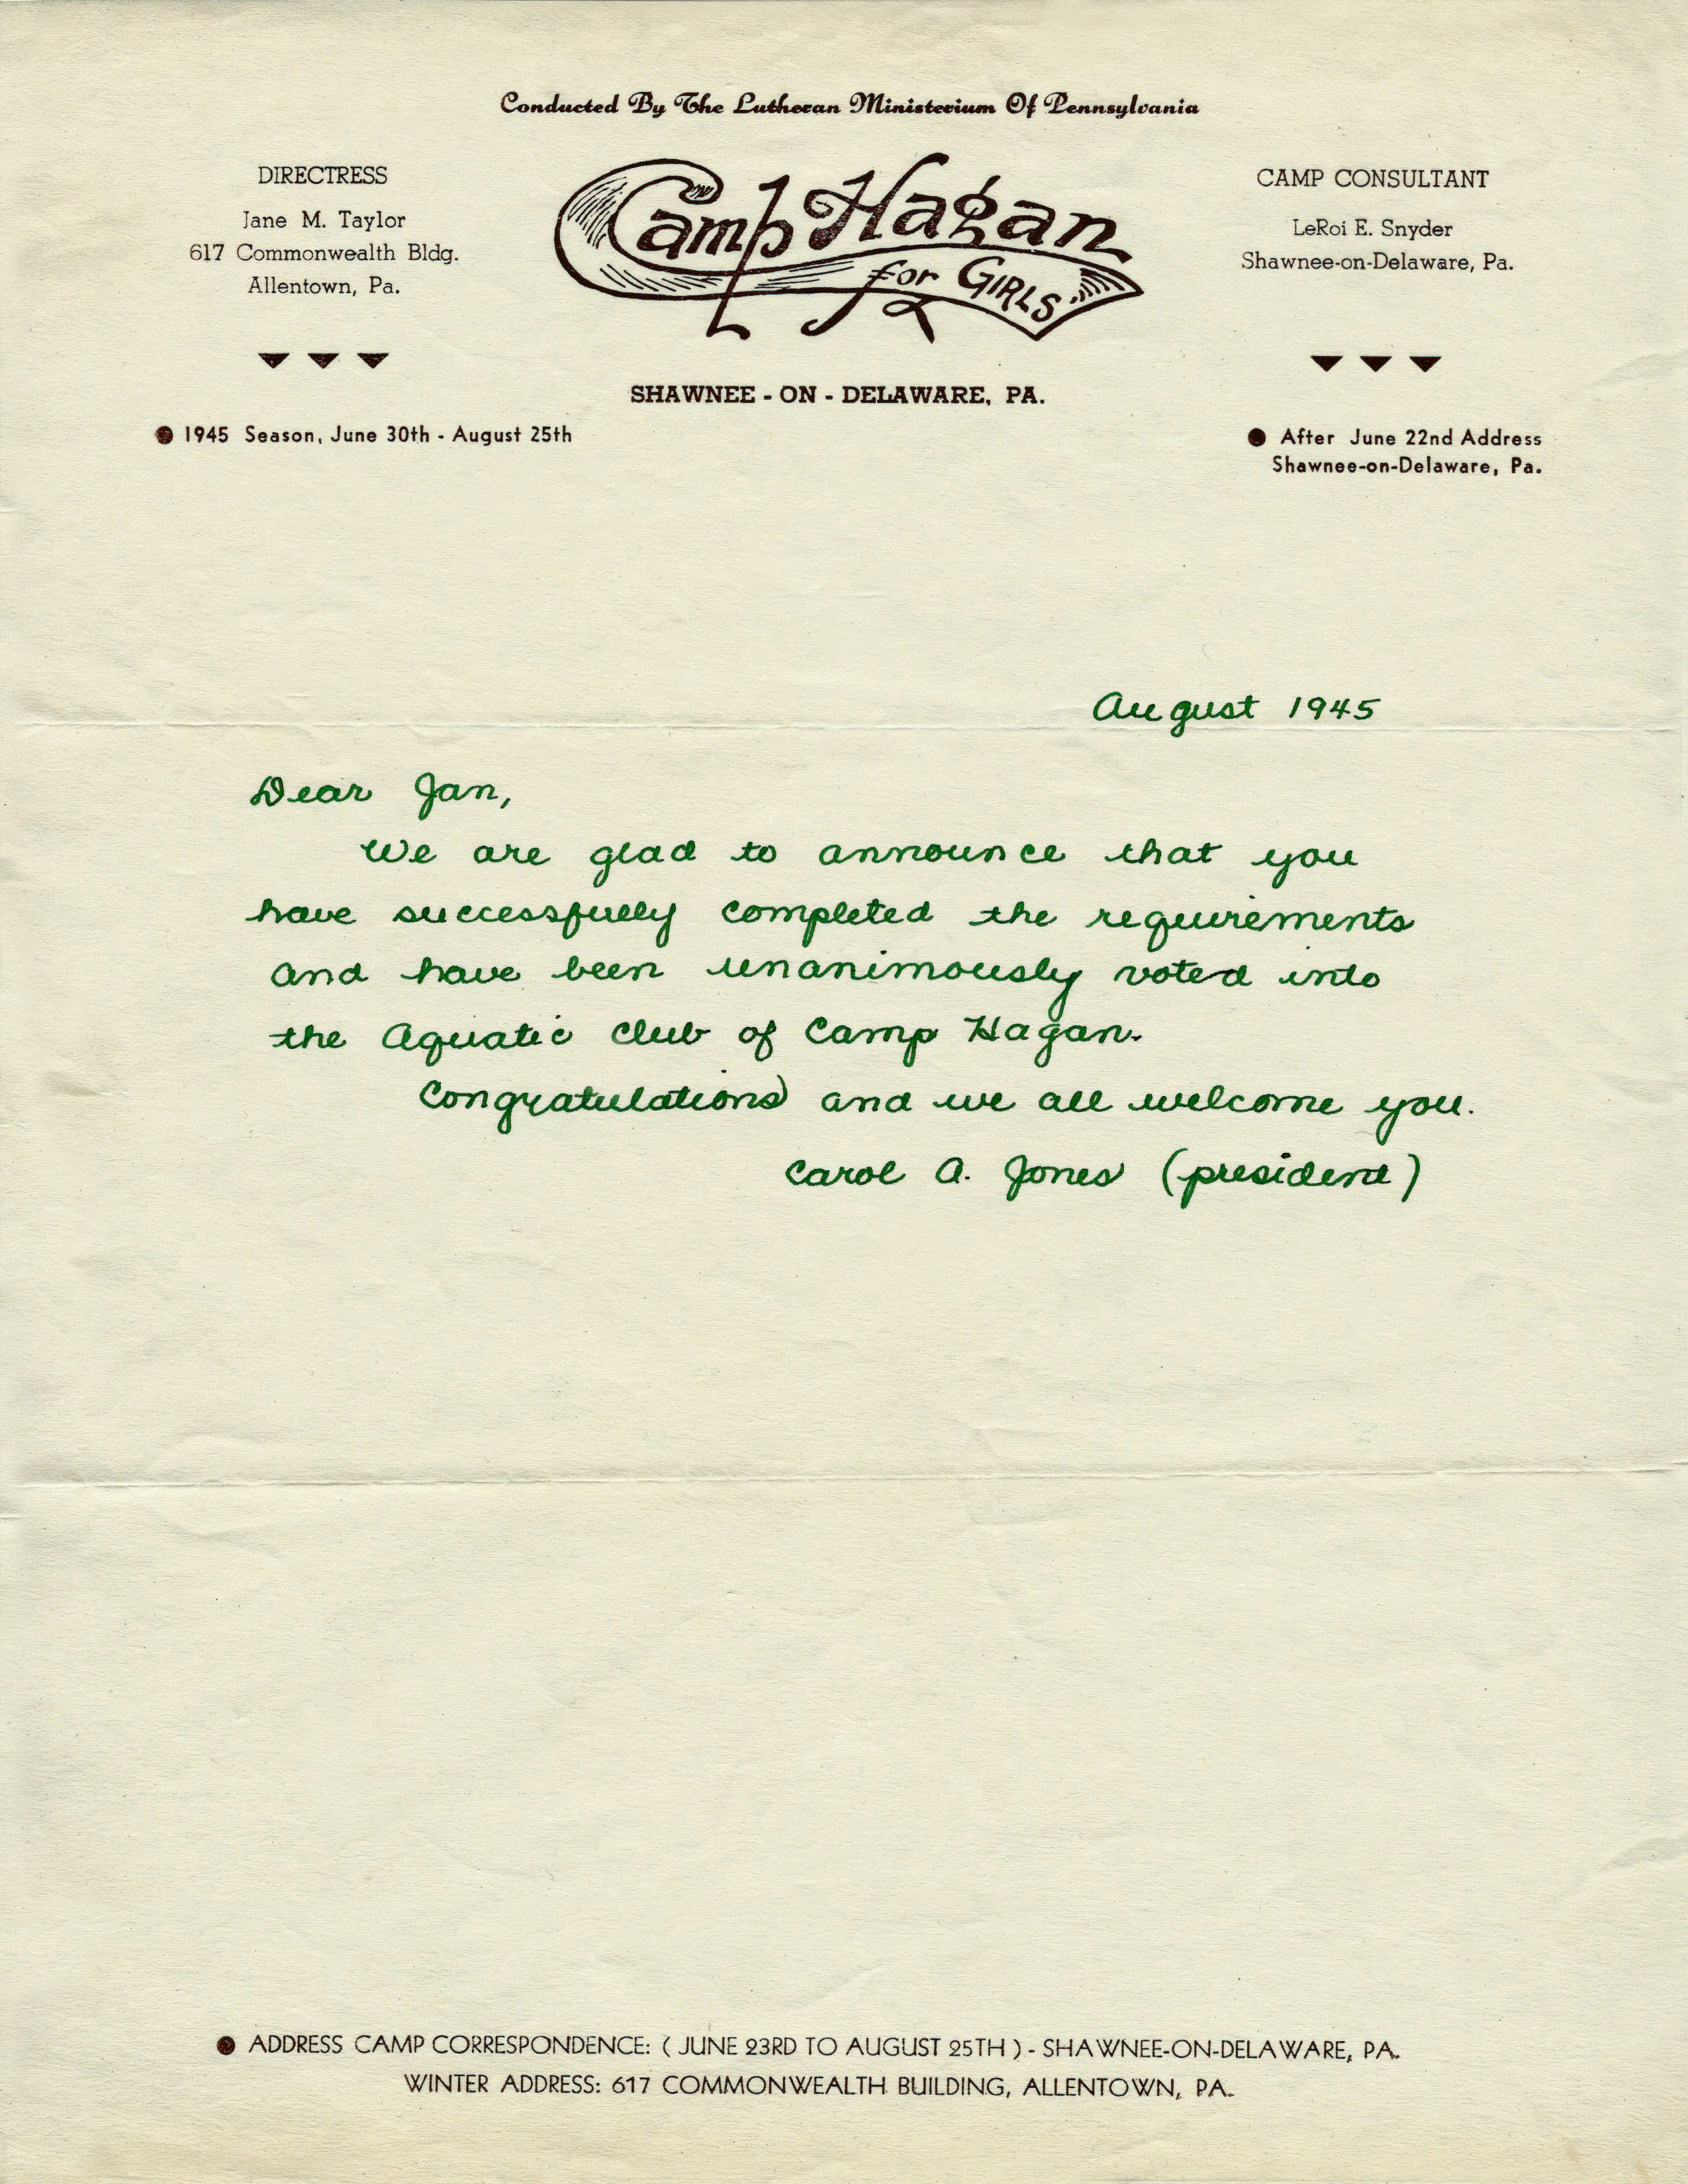 Conducted By The Lutheran Ministerium Of Pennsylvania
DIRECTRESS
Jane M. Taylor
617 Commonwealth Bldg.
Allentown, Pa.
Camp Hagan
for GIRLS
CAMP CONSULTANT
LeRoi E. Snyder
Shawnee-on-Delaware, Pa.
SHAWNEE - ON - DELAWARE, PA.
1945 Season, June 30th - August 25th
After June 22nd Address
Shawnee-on-Delaware, Pa.
August 1945
Dear Jan,
We are glad to announce that you
have successfully completed the requirements
and have been unanimously voted into
the Aquatic Club of Camp Hagan.
Congratulations and we all welcome you.
Carol A. Jones (president)
ADDRESS CAMP CORRESPONDENCE: ( JUNE 23RD TO AUGUST 25TH ) - SHAWNEE-ON-DELAWARE, PA.
WINTER ADDRESS: 617 COMMONWEALTH BUILDING, ALLENTOWN, PA.